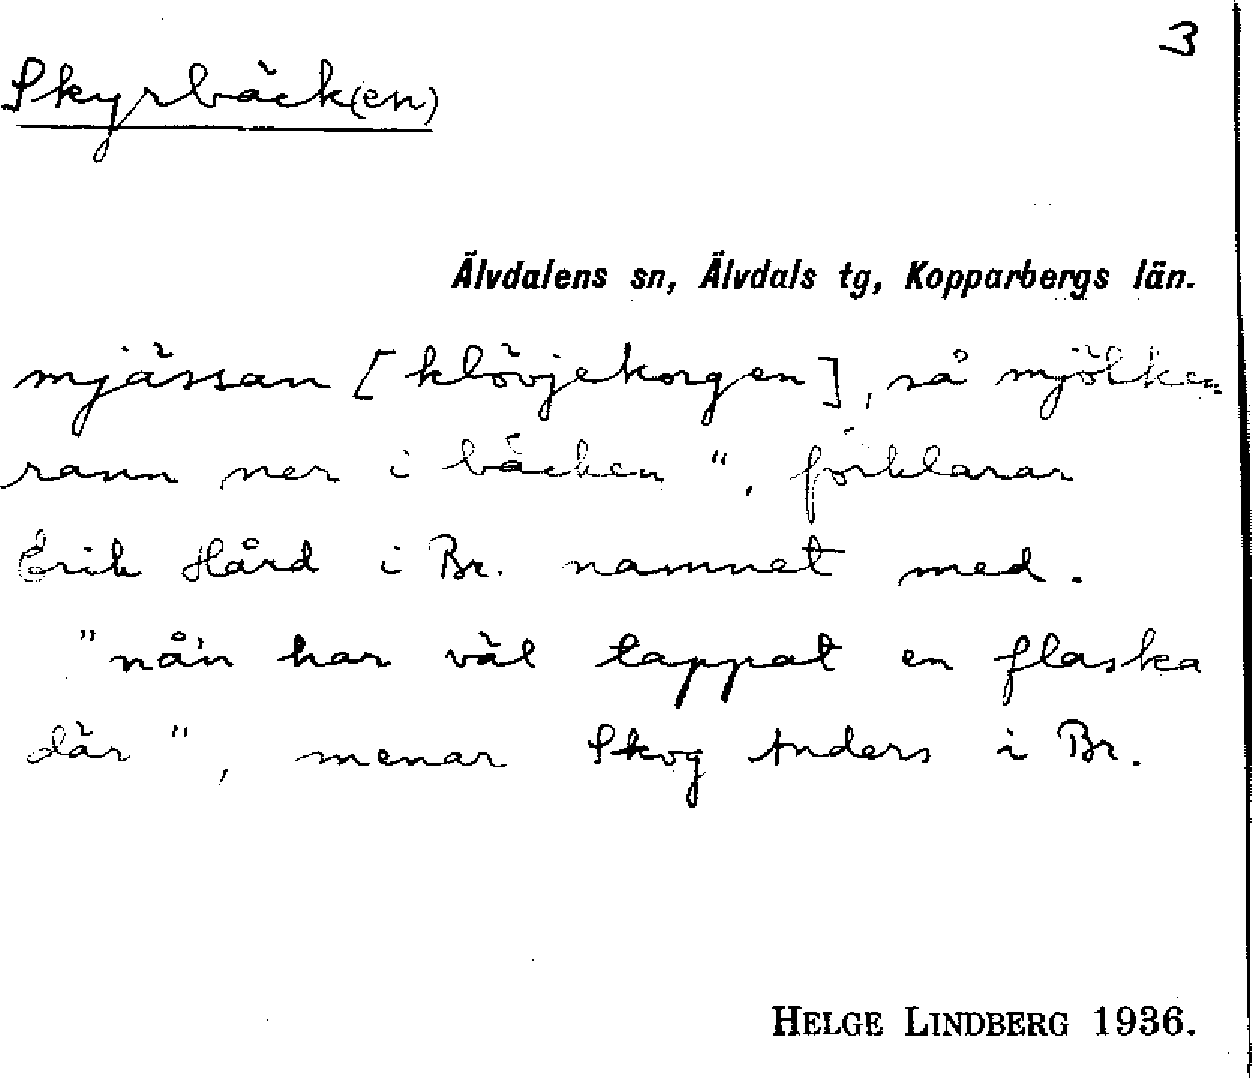 3
Skyrbäck(en)
Älvdalens sn, Älvdals tg, Kopparbergs län.
mjässan [klövjekorgen], så mjölken
rann ner i bäcken", förklarar
Erik Hård i Br. namnet med.
"nå'n har väl tappat en flaska
där", menar Skog Anders i Br.
HELGE LINDBERG 1936.